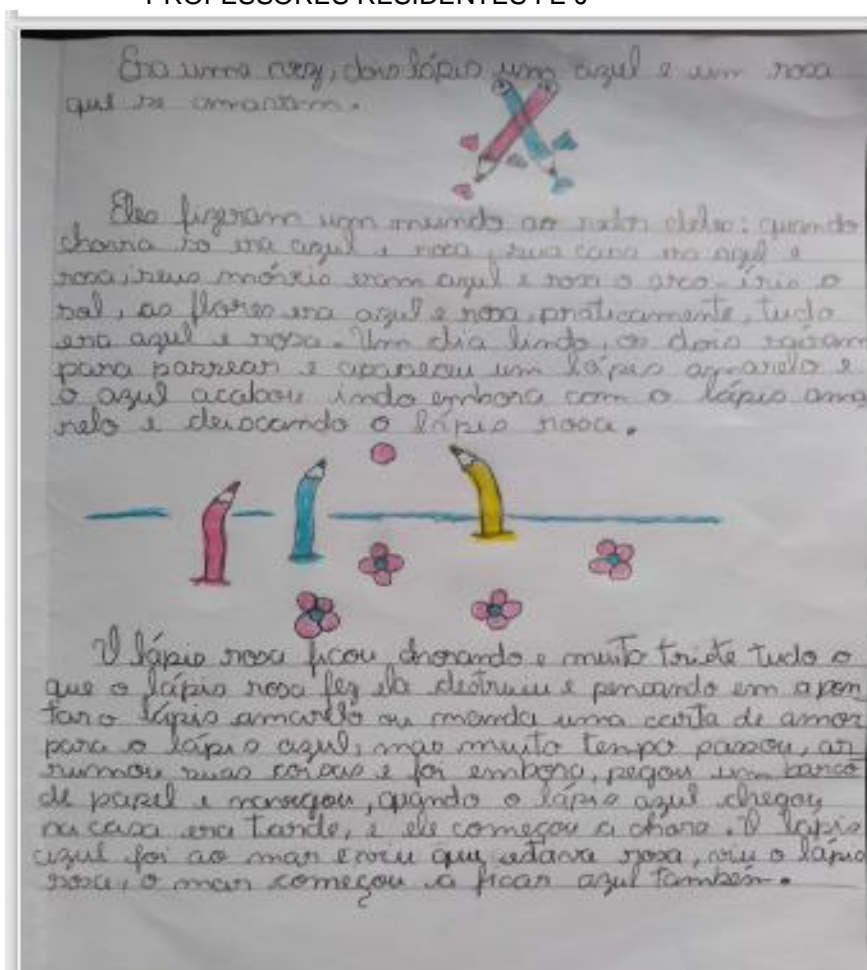 PROFESSORES RESIDENTES FE
Era uma vez, dois lápis um azul e um rosa
que se amavam.
Eles fizeram um mundo ao redor deles: quando
chovia só era azul e rosa, sua casa era azul e
rosa, seus móveis eram azul e rosa o arco-íris o
sol, as flores era azul e rosa, praticamente, tudo
era azul e rosa. Um dia lindo, os dois saíram
para passear e apareceu um lápis amarelo e
o azul acabou indo embora com o lápis ama
relo e deixando o lápis rosa.
O lápis rosa ficou chorando e muito triste tudo o
que o lápis rosa fez ela destruiu e pensando em apon
tar o lápis amarelo ou manda uma carta de amor
para o lápis azul, mas muito tempo passou, ar
rumou suas coisas e foi embora, pegou um barco
de papel e navegou, quando o lápis azul chegou
na casa era tarde, e ele começou a chora. O lápis
azul foi ao mar e viu que estava rosa, viu o lápis
rosa, o mar começou a ficar azul também.